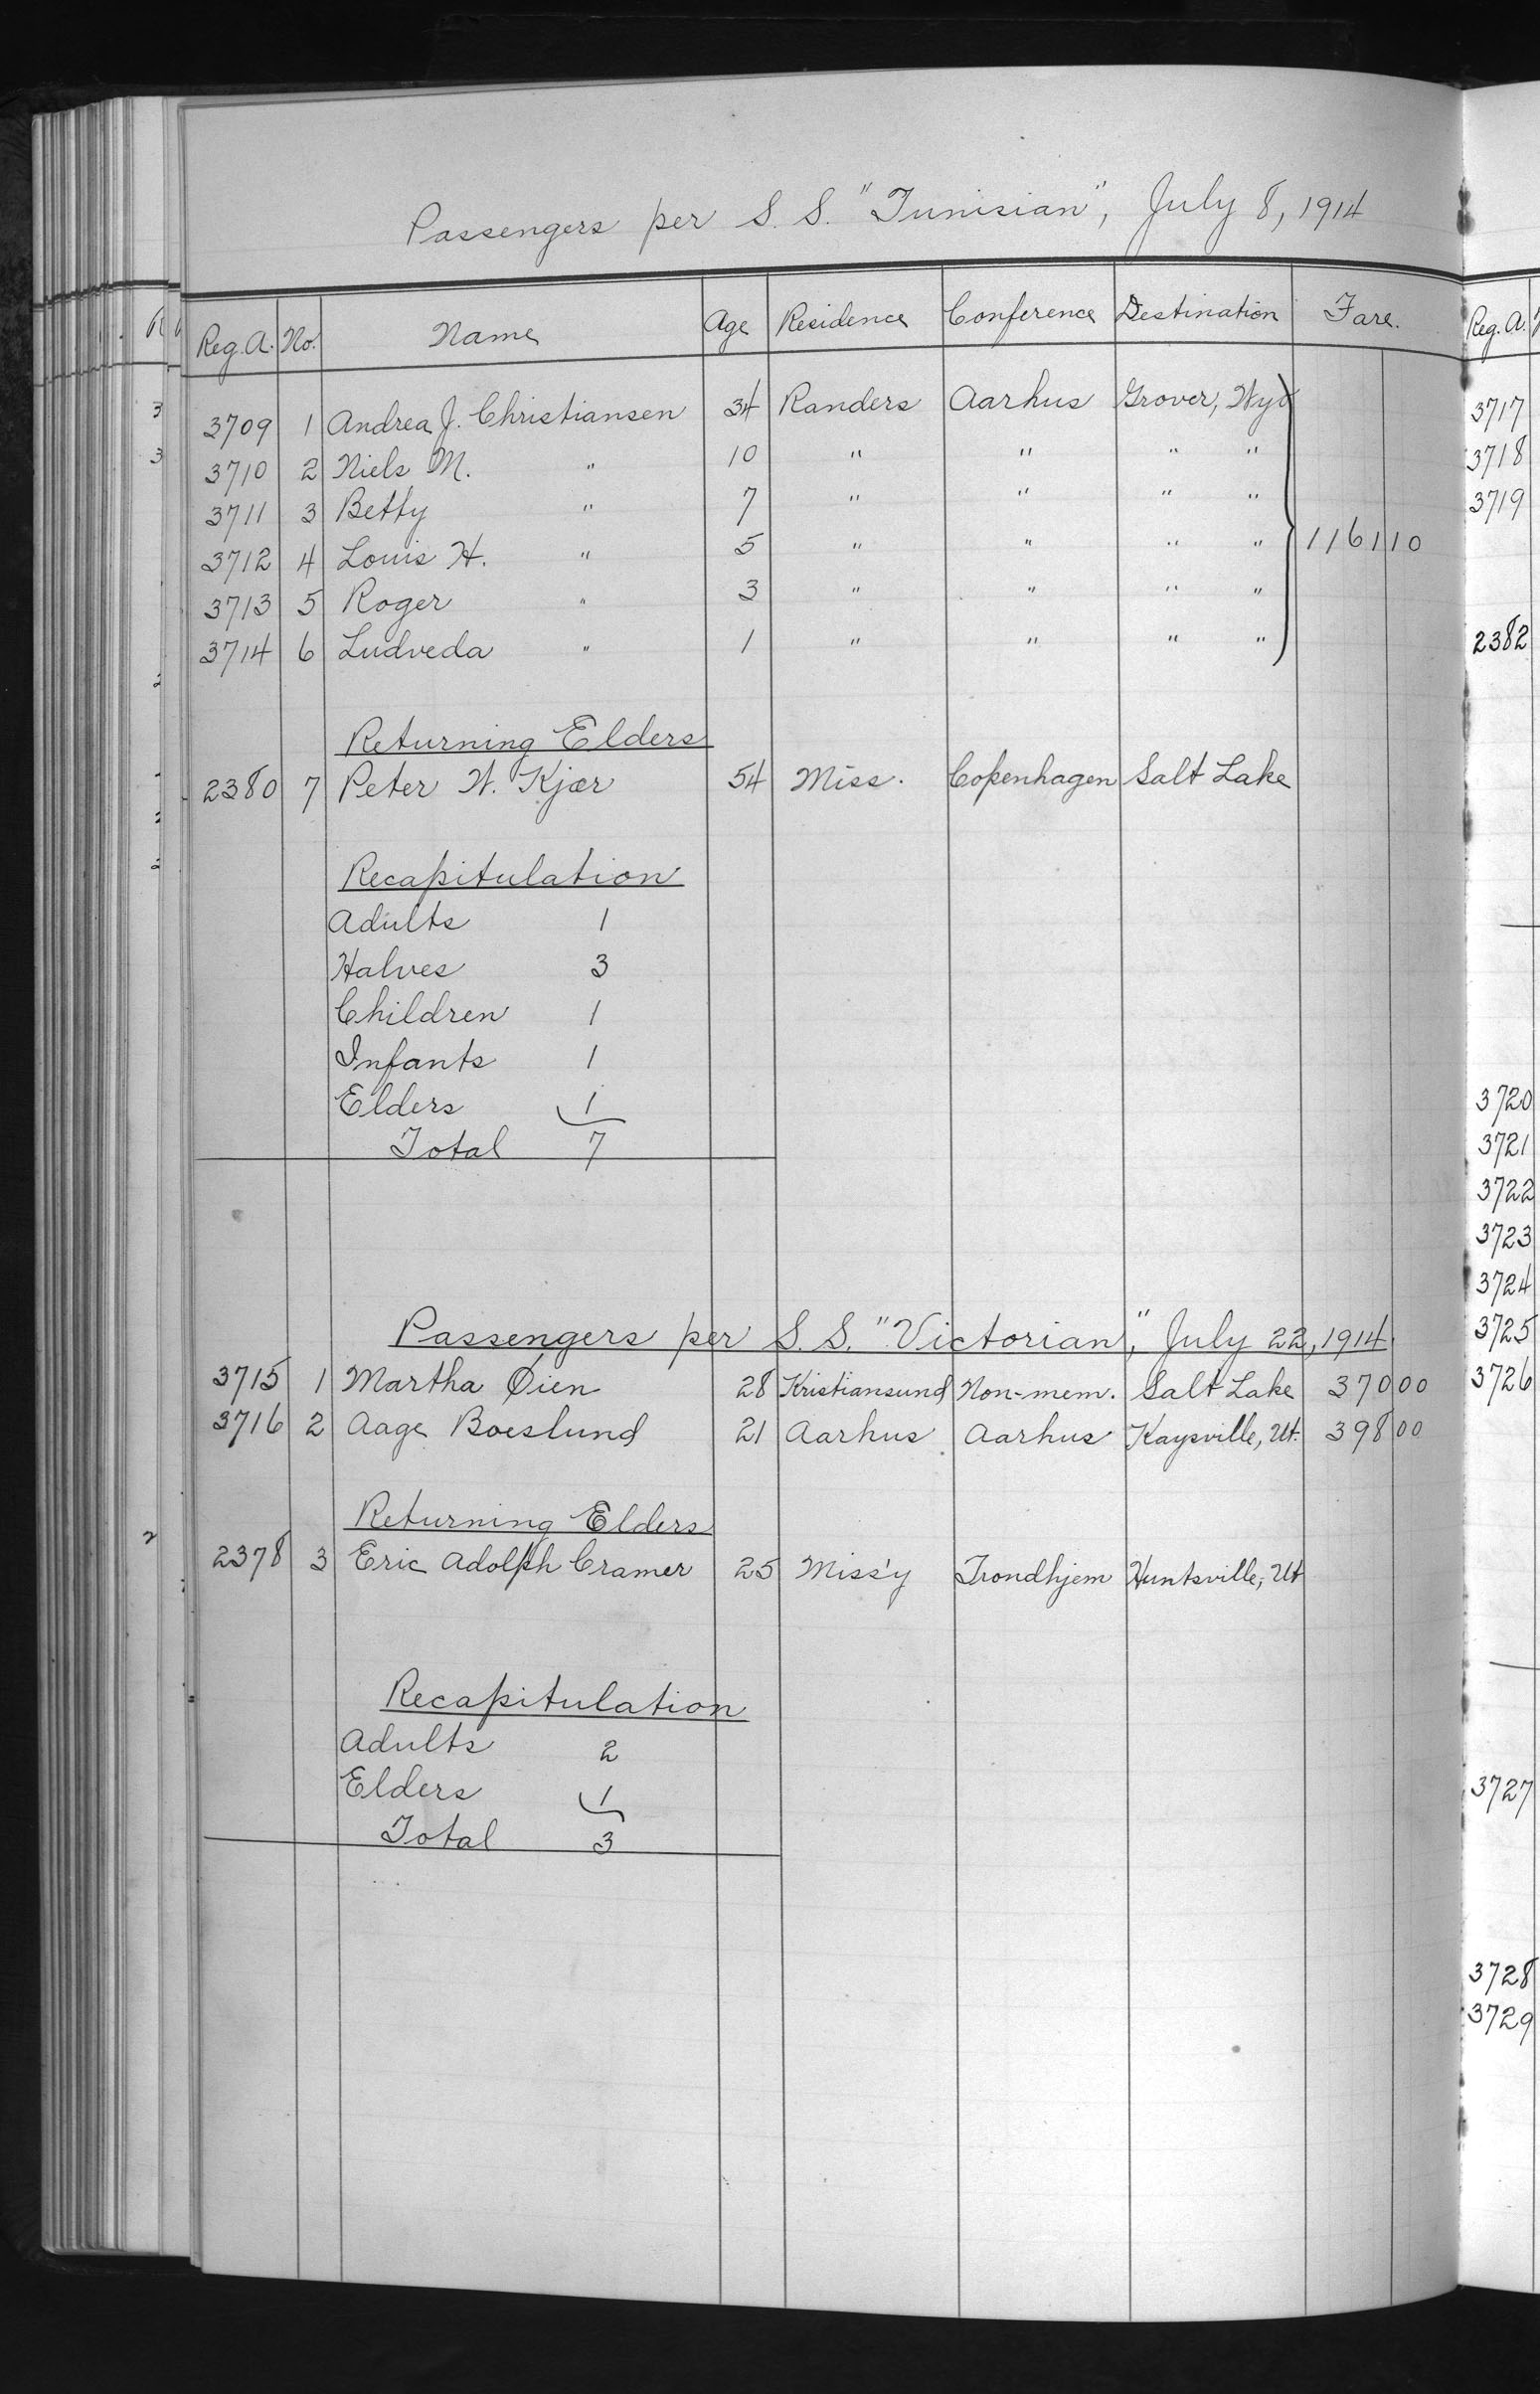 Passengers per S. S. "Tunisian", July 8, 1914
Reg. A. No. Name Age Residence Conference Destination Fare.
3709 1 Andrea J. Christiansen 34 Randers Aarhus Grover, Wyo
3710 2 Niels M. " 10 " " " "
3711 3 Betty " 7 " " " "
3712 4 Louis H. " 5 " " " " 1161 10
3713 5 Roger " 3 " " " "
3714 6 Ludveda " 1 " " " "
Returning Elders
2380 7 Peter W. Kjær 54 Miss. Copenhagen Salt Lake
Recapitulation
Adults 1
Halves 3
Children 1
Infants 1
Elders 1
Total 7
Passengers per S. S. "Victorian," July 22, 1914
3715 1 Martha Øien 28 Kristiansund Non-mem. Salt Lake 370 00
3716 2 Aage Boeslund 21 Aarhus Aarhus Kaysville, Ut. 398 00
Returning Elders
2378 3 Eric Adolph Cramer 25 Miss'y Trondhjem Huntsville, Ut
Recapitulation
Adults 2
Elders 1
Total 3
Reg. A.
3717
3718
3719
2382
3720
3721
3722
3723
3724
3725
3726
3727
3728
3729